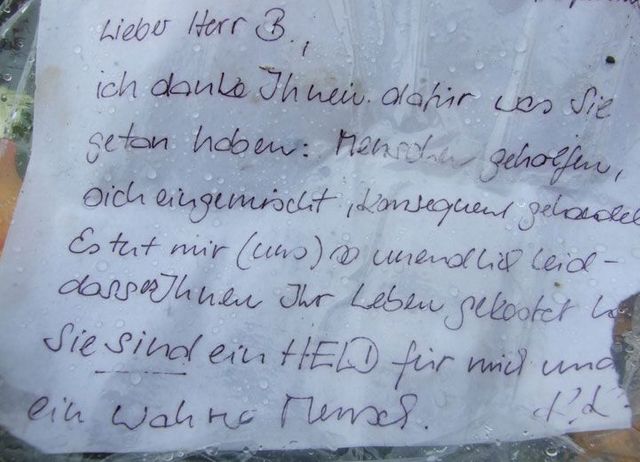 Lieber Herr B.,
ich danke Ihnen dafür was Sie
getan haben: Menschen geholfen,
sich eingemischt, konsequent gehandel
Es tut mir (uns) so unendlich leid -
dass es Ihnen Ihr Leben gekostet h
Sie sind ein HELD für mich und
ein wahrer Mensch.